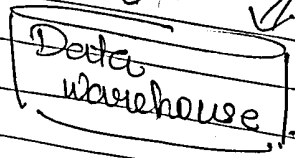 Data
warehouse